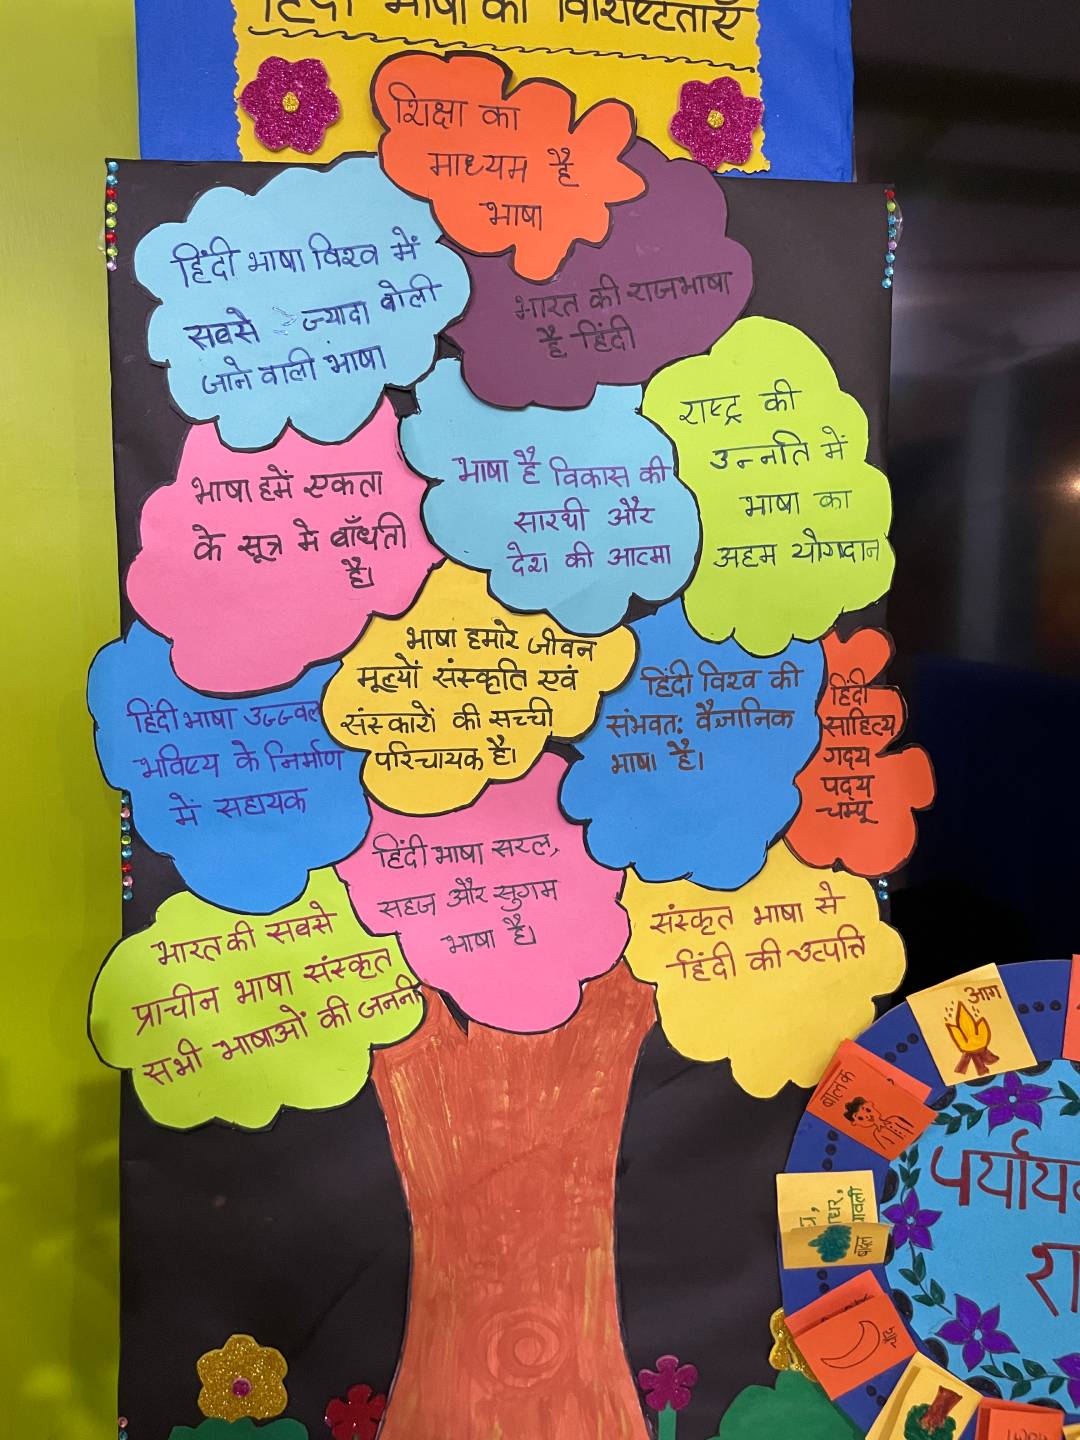 हिंदी भाषा की विशेषताएँ
शिक्षा का
माध्यम है
भाषा
हिंदी भाषा विश्व में
सबसे ज्यादा बोली
जाने वाली भाषा
भारत की राजभाषा
है हिंदी
राष्ट्र की
उन्नति में
भाषा का
अहम योगदान
भाषा हमें एकता
के सूत्र मे बाँधती
है।
भाषा है विकास की
सारथी और
देश की आत्मा
भाषा हमारे जीवन
मूल्यों संस्कृति एवं
संस्कारों की सच्ची
परिचायक है।
हिंदी भाषा उज्ज्वल
भविष्य के निर्माण
में सहायक
हिंदी विश्व की
संभवतः वैज्ञानिक
भाषा है।
हिंदी
साहित्य
गद्य
पद्य
चम्पू
हिंदी भाषा सरल,
सहज और सुगम
भाषा है।
भारत की सबसे
प्राचीन भाषा संस्कृत
सभी भाषाओं की जननी
संस्कृत भाषा से
हिंदी की उत्पत्ति
आग
बालक
बादल
पर्याय